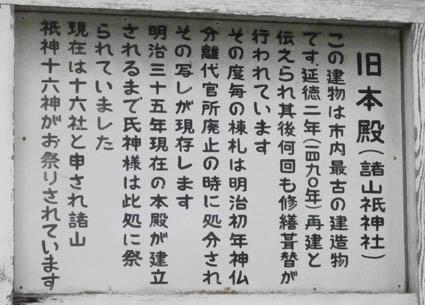 旧本殿(諸山祇神社)
この建物は市内最古の建造物
です.延徳二年(一四九〇年)再建と
伝えられ其後何回も修繕葺替が
行われています
その度毎の棟札は明治初年神仏
分離代官所廃止の時に処分され
その写しが現存します
明治三十五年現在の本殿が建立
されるまで氏神様は此処に祭
られていました
現在は十六社と申され諸山
祇神十六神がお祭りされています